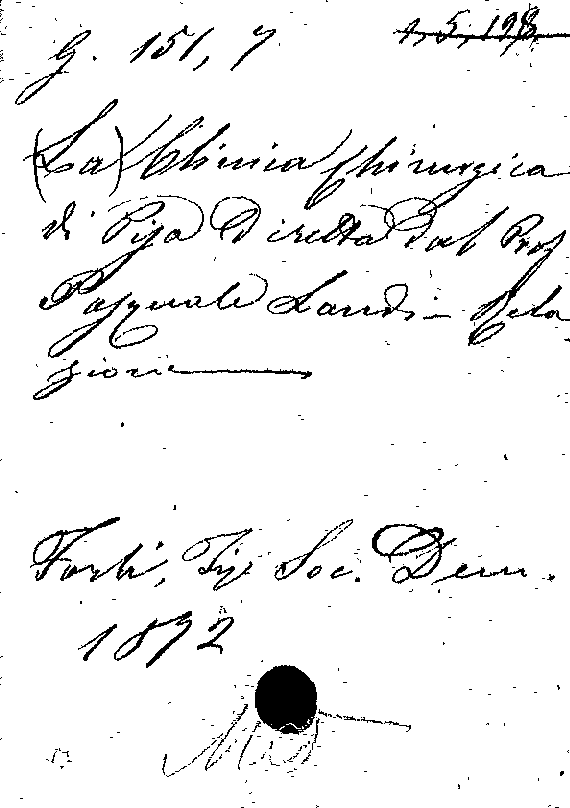 G. 151, 7
1, 5, 198
(La) Clinica Chirurgica
di Pisa Diretta dal Prof
Pasquale Landi - Rela
zione
Forlì, Tip Soc. Dem.
1872
Med